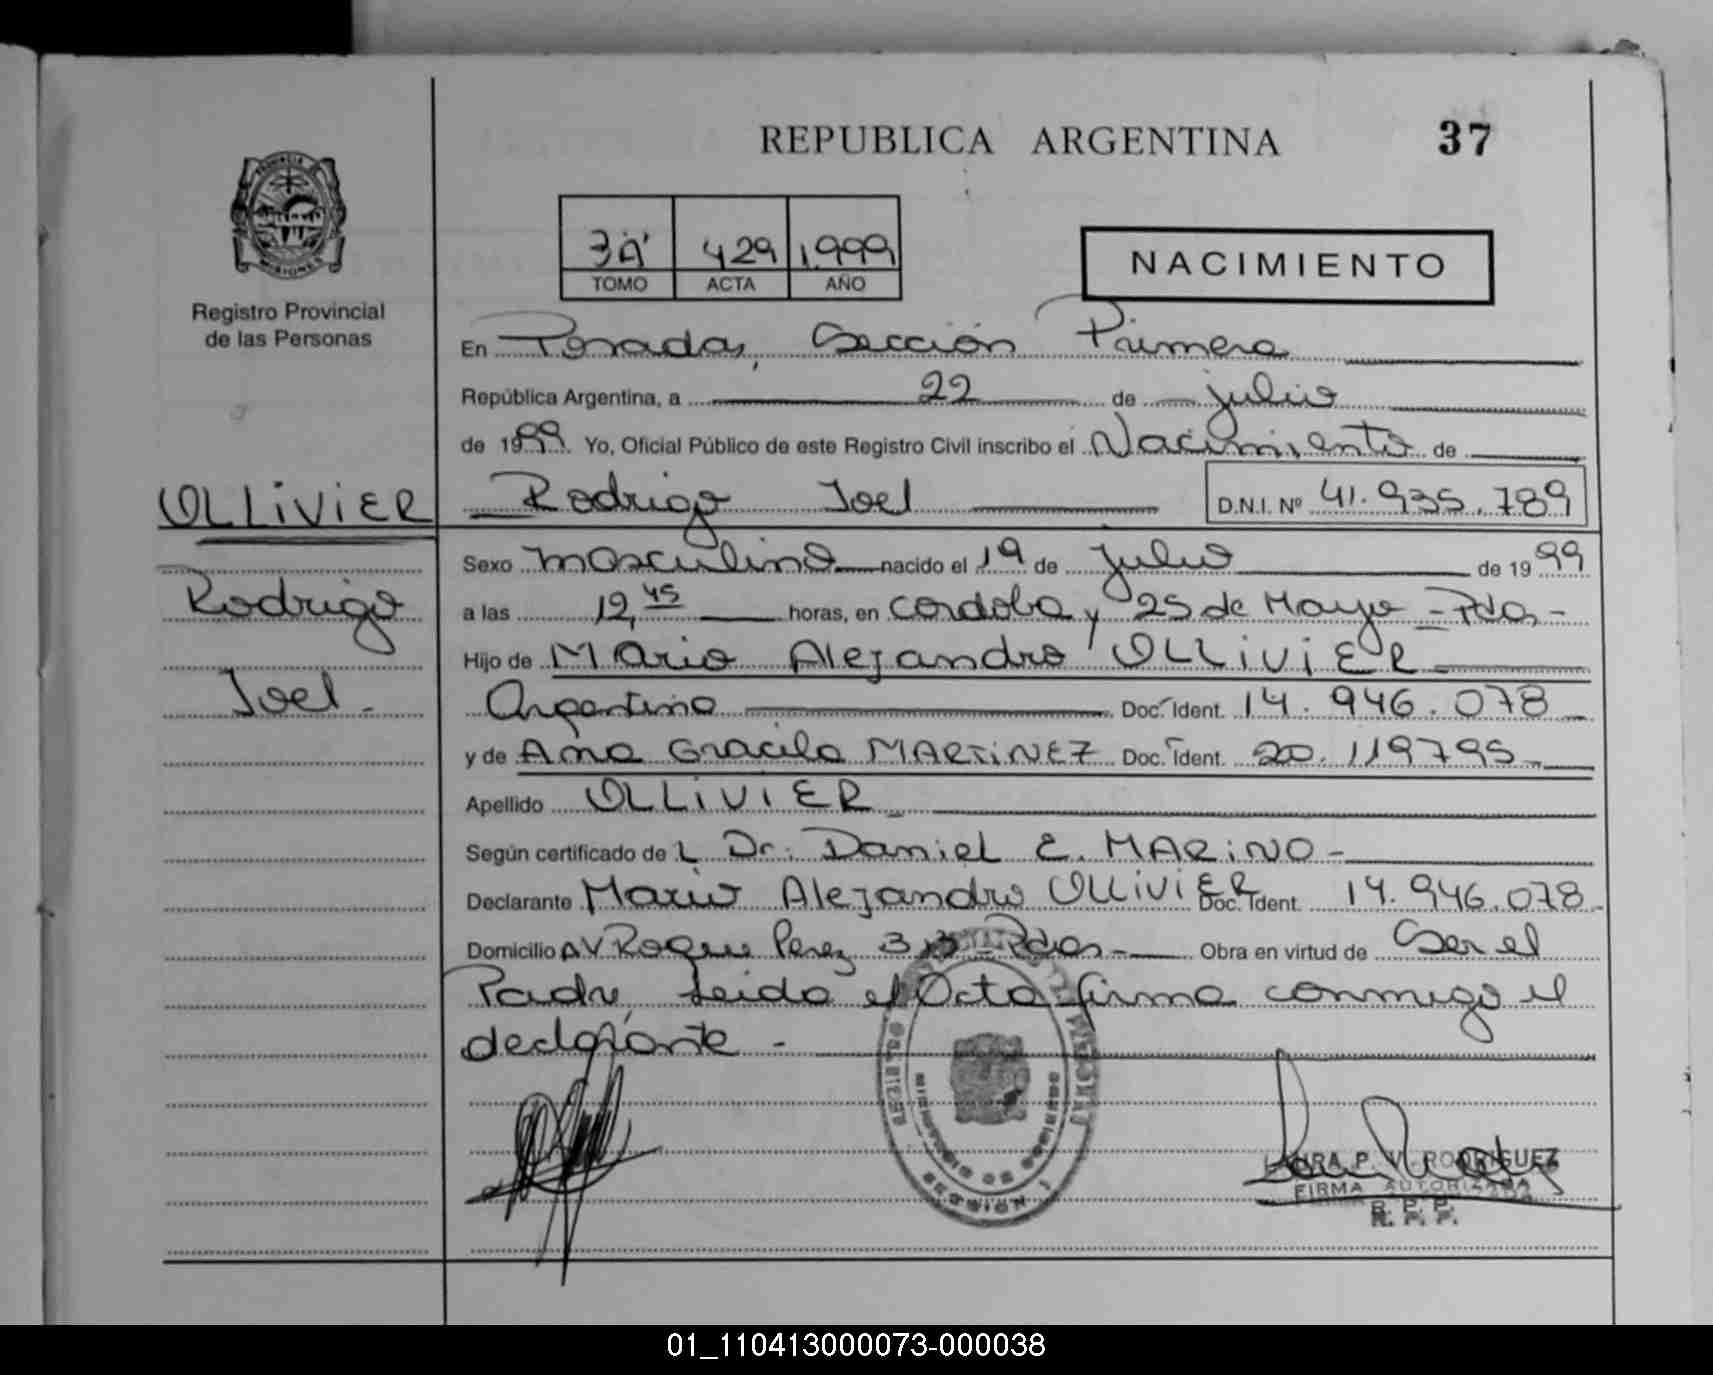 REPUBLICA ARGENTINA 37
3A' 429 1999
TOMO ACTA AÑO
NACIMIENTO
PROVINCIA
MISIONES
Registro Provincial
de las Personas
En Posadas, Sección Primera
República Argentina, a 22 de julio
de 1999 Yo, Oficial Público de este Registro Civil inscribo el Nacimiento de
Rodrigo Joel D.N.I. Nº 41.935.789
OLLiViER
Rodrigo
Joel -
Sexo masculino nacido el 19 de julio de 1999
a las 12,45 horas, en cordoba y 25 de Mayo - Pdas -
Hijo de Mario Alejandro OLLiViER
Argentino Doc. Ident. 14.946.078
y de Ana Graciela MARTiNEZ Doc. Ident. 20.119795
Apellido OLLiViER
Según certificado de L Dr. Daniel E. MARiNO -
Declarante Mario Alejandro OLLiViER Doc. Ident. 14.946.078
Domicilio AV Roque Perez Pdas - Obra en virtud de Ser el
Padre, Leida el Acta firma conmigo el
declarante -
LAURA P. V. RODRIGUEZ
FIRMA AUTORIZADA
R. P. P.
SECCION 1
01_110413000073-000038